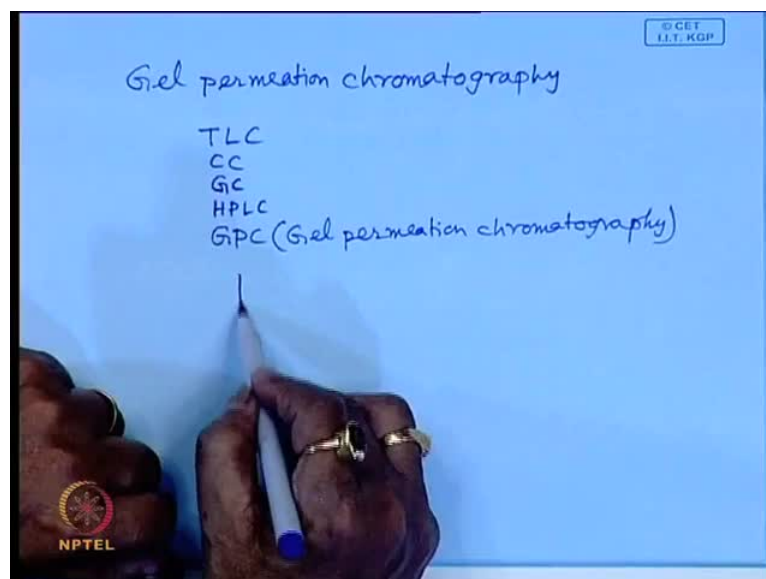 © CET
I.I.T. KGP
Gel permeation chromatography
TLC
CC
GC
HPLC
GPC (Gel permeation chromatography)
NPTEL